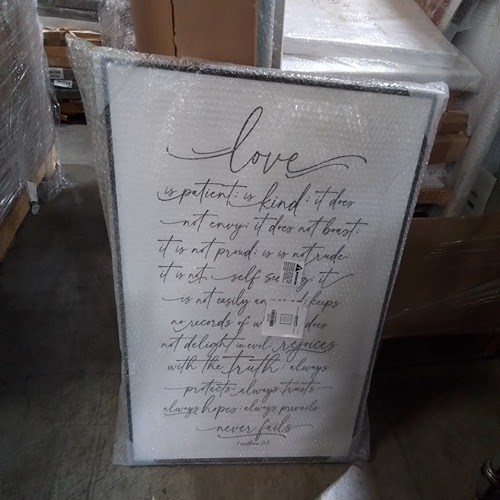 love
is patient: is kind: it does
not envy: it does not boast:
it is not proud: is is not rude:
it is not self it
is not easily keeps
no records of does
not delight in evil rejoices
with the truth: always
protects: always trusts
always hopes: always prevails
never fails